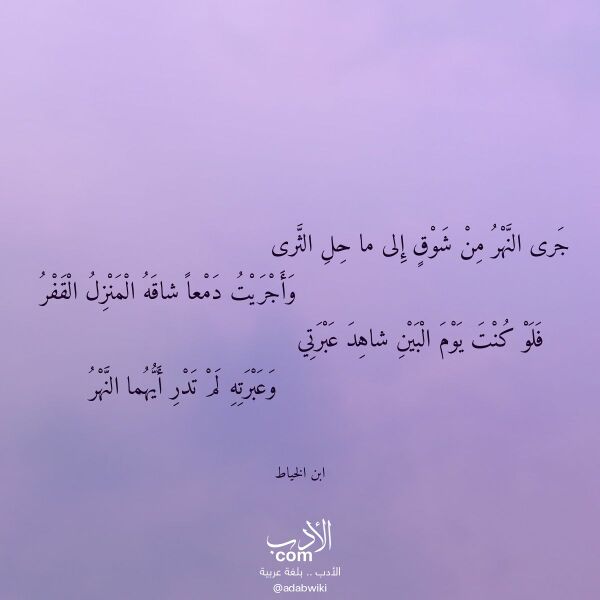 جَرى النَّهْرُ مِنْ شَوْقٍ إِلى ما حِلِ الثَّرى
وَأَجْرَيْتُ دَمْعاً شاقَهُ الْمَنْزِلُ الْقَفْرُ
فَلَوْ كُنْتَ يَوْمَ الْبَيْنِ شاهِدَ عَبْرَتِي
وَعَبْرَتِهِ لَمْ تَدْرِ أَيُّهُما النَّهْرُ
ابن الخياط
الأدب
com
الأدب .. بلغة عربية
@adabwiki